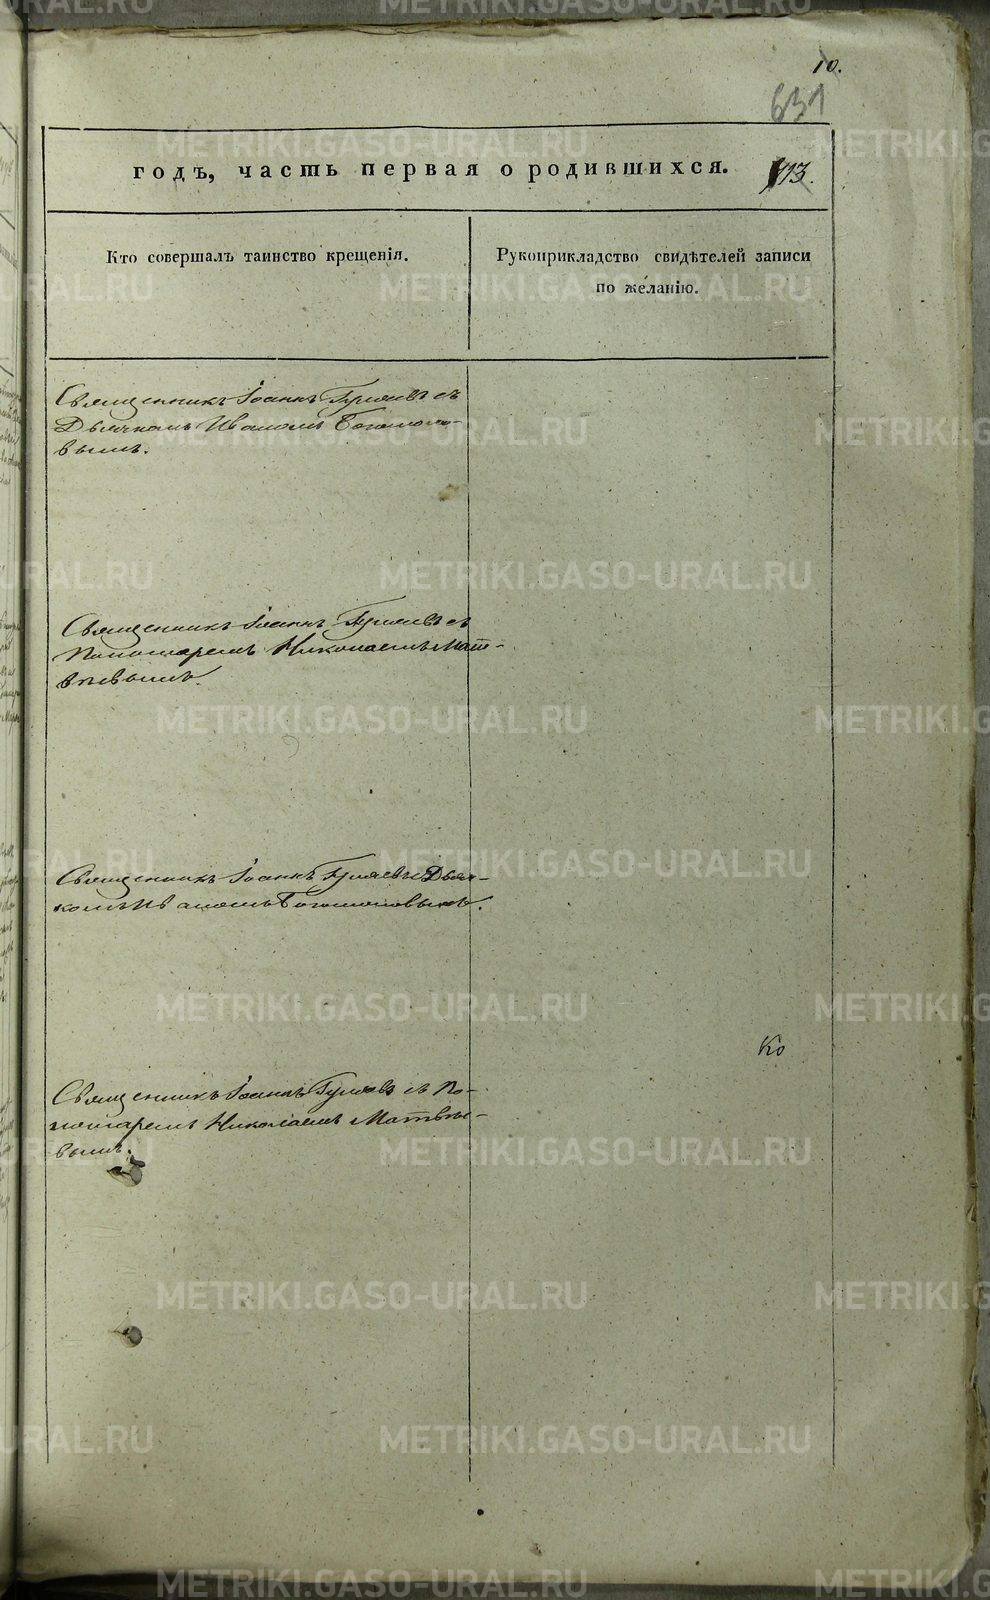 10.
631
годъ, часть первая о родившихся. 113.
Кто совершалъ таинство крещенія.
Рукоприкладство свидѣтелей записи
по желанію.
Священникъ Іоаннъ Гуляевъ съ
Дьячкомъ Иваномъ Богомоло-
вымъ.
Священникъ Іоаннъ Гуляевъ съ
Пономаремъ Николаемъ Мат-
вѣевымъ.
Священникъ Іоаннъ Гуляевъ съ Дьяч-
комъ Иваномъ Богомоловымъ.
Ко
Священникъ Іоаннъ Гуляевъ съ По-
номаремъ Николаемъ Матвѣе-
вымъ.
METRIKI.GASO-URAL.RU